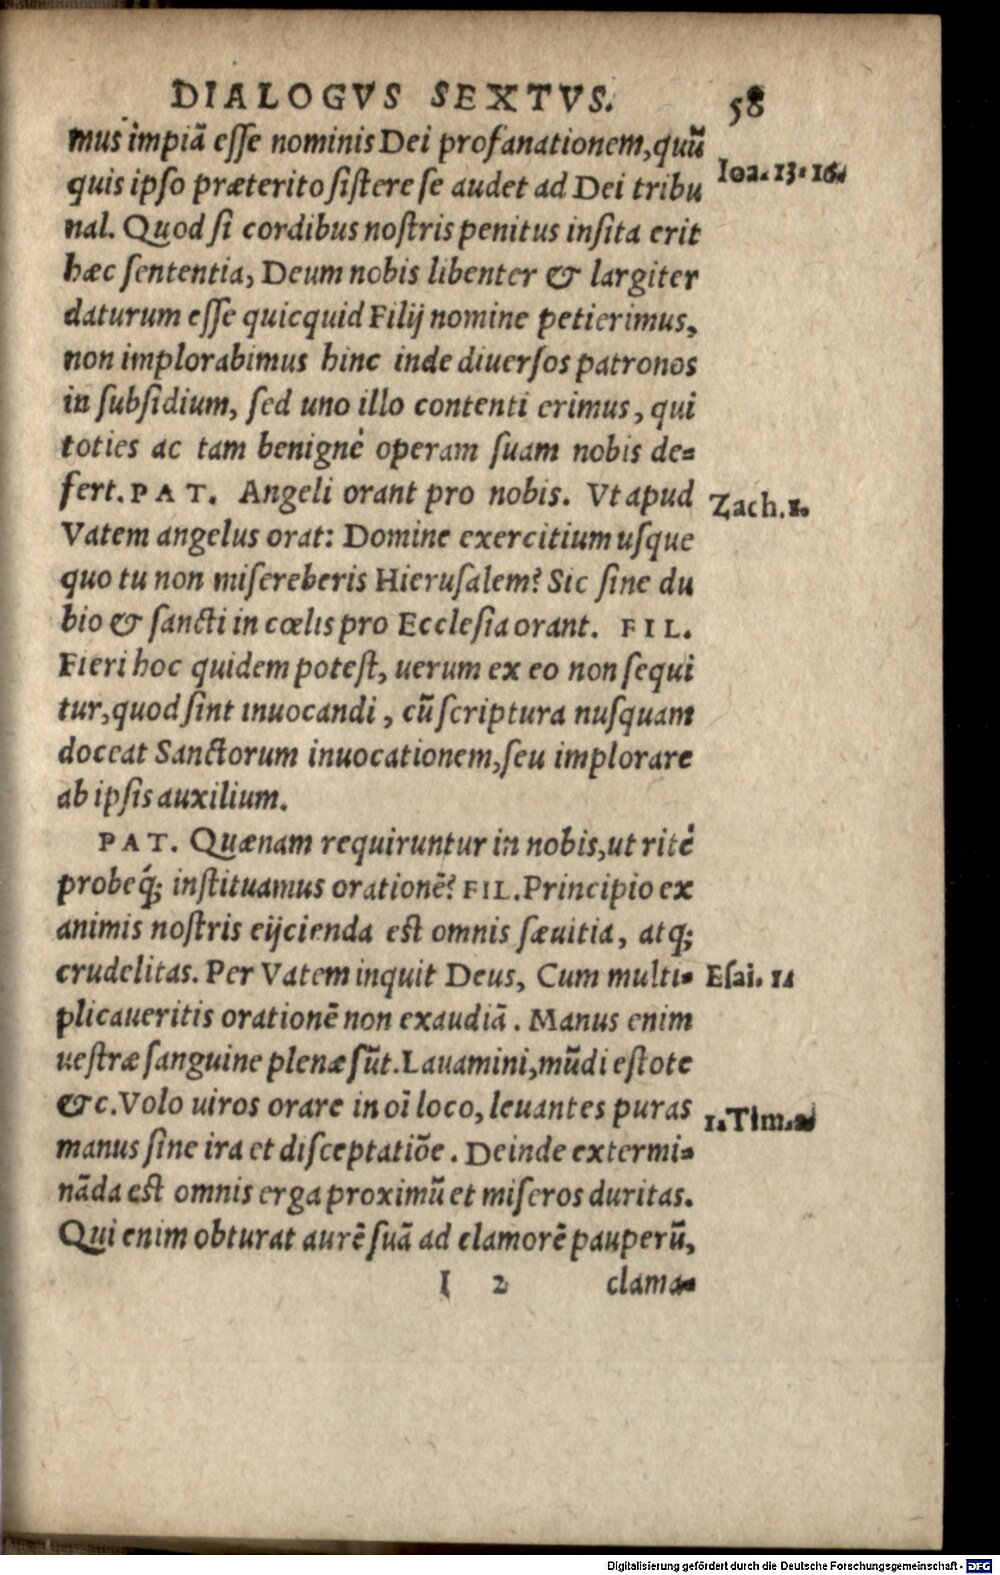 DIALOGVS SEXTVS. 58
mus impiã esse nominis Dei profanationem, quũ
quis ipso præterito sistere se audet ad Dei tribu
Ioa. 13. 16.
nal. Quod si cordibus nostris penitus insita erit
hæc sententia, Deum nobis libenter & largiter
daturum esse quicquid Filij nomine petierimus,
non implorabimus hinc inde diuersos patronos
in subsidium, sed uno illo contenti erimus, qui
toties ac tam benignè operam suam nobis de=
fert. PAT. Angeli orant pro nobis. Vt apud
Zach. 1.
Vatem angelus orat: Domine exercitium usque
quo tu non misereberis Hierusalem? Sic sine du
bio & sancti in cœlis pro Ecclesia orant. FIL.
Fieri hoc quidem potest, uerum ex eo non sequi
tur, quod sint inuocandi, cũ scriptura nusquam
doceat Sanctorum inuocationem, seu implorare
ab ipsis auxilium.
PAT. Quænam requiruntur in nobis, ut ritè
probeq́; instituamus orationẽ? FIL. Principio ex
animis nostris eijcienda est omnis sæuitia, atq;
crudelitas. Per Vatem inquit Deus, Cum multi=
Esai. 1
plicaueritis orationẽ non exaudiã. Manus enim
uestræ sanguine plenæ sũt. Lauamini, mũdi estote
&c. Volo uiros orare in oĩ loco, leuantes puras
1. Tim. 2
manus sine ira et disceptatiõe. Deinde extermi=
nãda est omnis erga proximũ et miseros duritas.
Qui enim obturat aurẽ suã ad clamorẽ pauperũ,
I 2 clama=
Digitalisierung gefördert durch die Deutsche Forschungsgemeinschaft - DFG